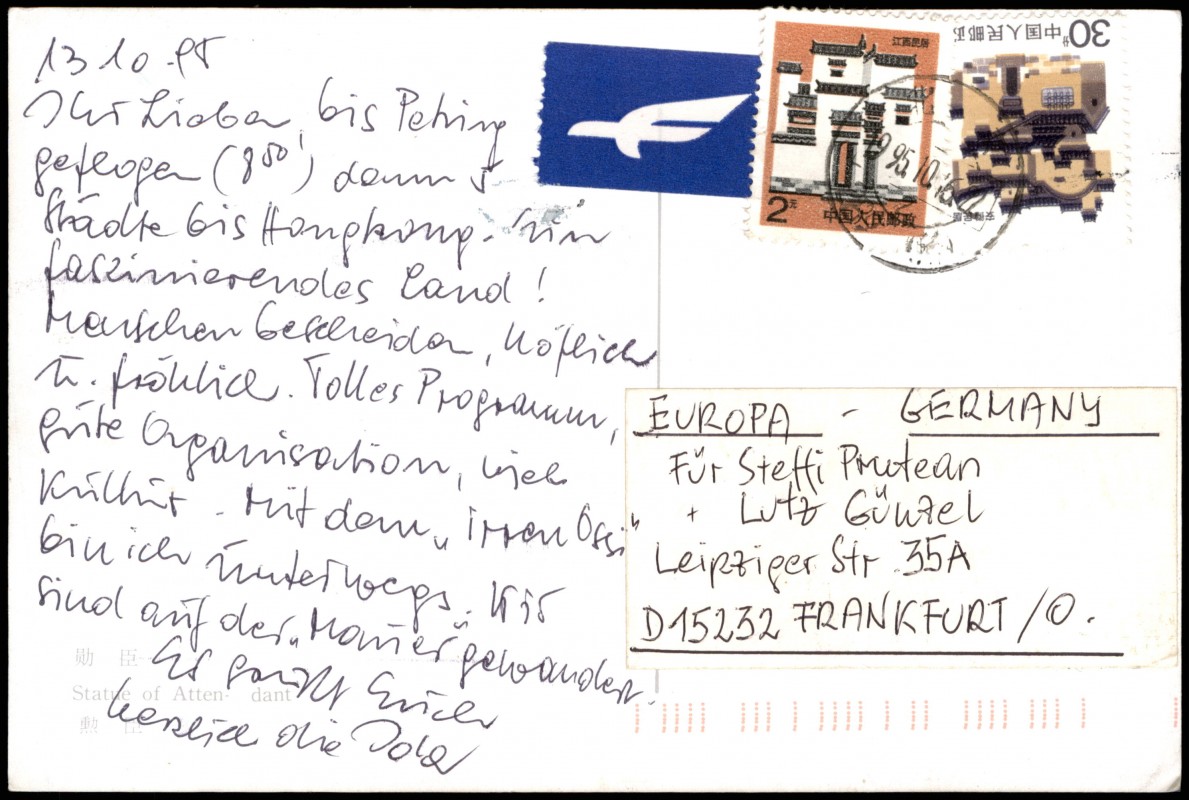 13.10.95
Ihr Lieben, bis Peking
geflogen (850') dann 5
Städte bis Hongkong. Ein
faszinierendes Land!
Menschen bescheiden, höflich
u. fröhlich. Tolles Programm,
gute Organisation, viel
Kultur. Mit dem „irren Ossi"
bin ich unterwegs. Wir
sind auf der „Mauer" gewandert.
Es grüßt Euch
herzlich die
勋 臣
Statue of Atten- dant
勲 臣
2元
中国人民邮政
30分
中国人民邮政
安徽民居
95.10.15
EUROPA - GERMANY
Für Steffi Prutean
+ Lutz Günzel
Leipziger Str. 35A
D15232 FRANKFURT/O.